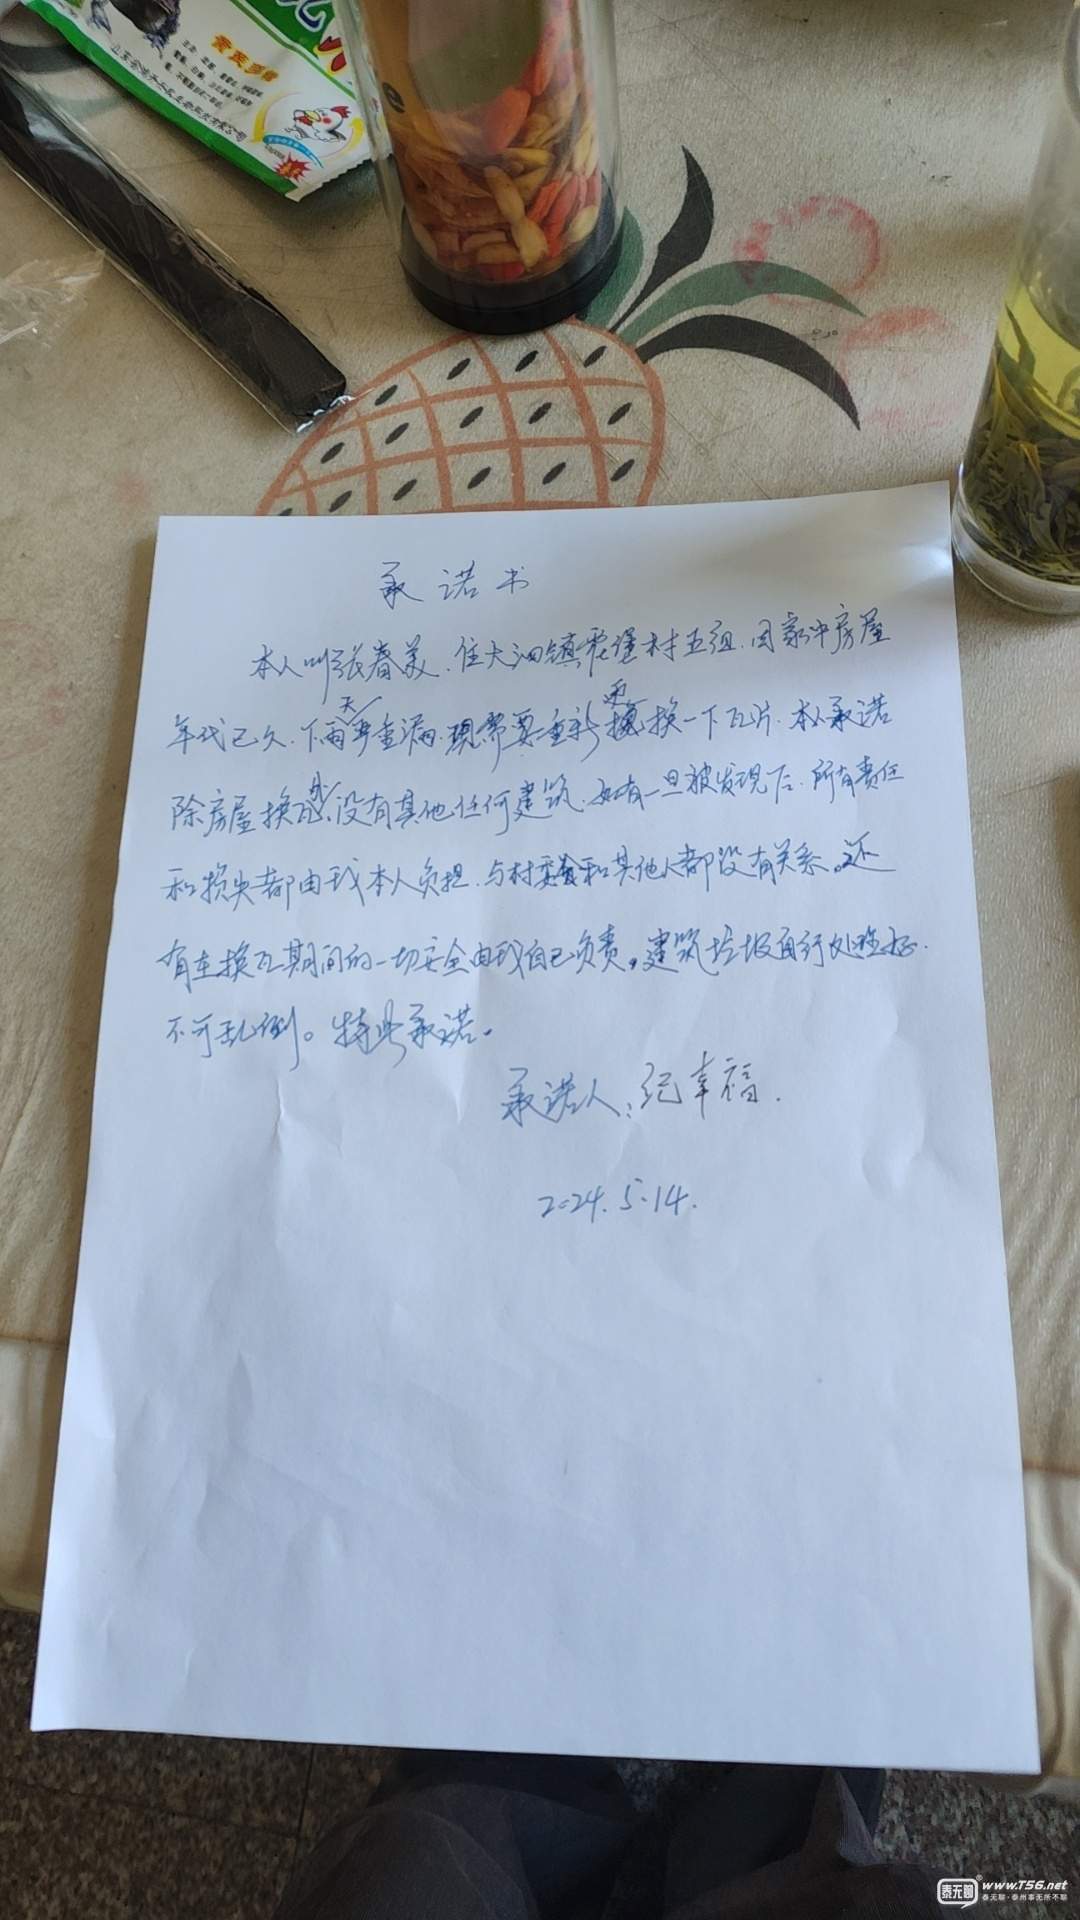 承诺书
本人叫张春美.住大泗镇霍堡村五组.因家中房屋
年代已久.下雨天严重漏雨.现需要重新换一下瓦片.本人承诺
除房屋换瓦外.没有其他任何建筑.如有一旦被发现后.所有责任
和损失都由我本人负担.与村委会和其他人都没有关系.还
有在换瓦期间的一切安全由我自己负责。建筑垃圾自行处理好.
不可乱倒。特此承诺。
承诺人:纪幸福.
2024.5.14.
泰无聊
www.T56.net
泰无聊·泰州事无所不聊